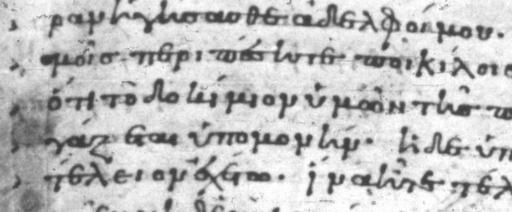 ραν ἡγήσασθε ἀδελφοί μου·
μοῖσ περιπέσητε ποικίλοισ
ὅτι τὸ δοκίμιον ὑμῶν τῆσ π
γάζεται ὑπομονήν· ἡ δὲ ὑπ
τέλειον ἐχέτω· ἵνα ἦτε τελ